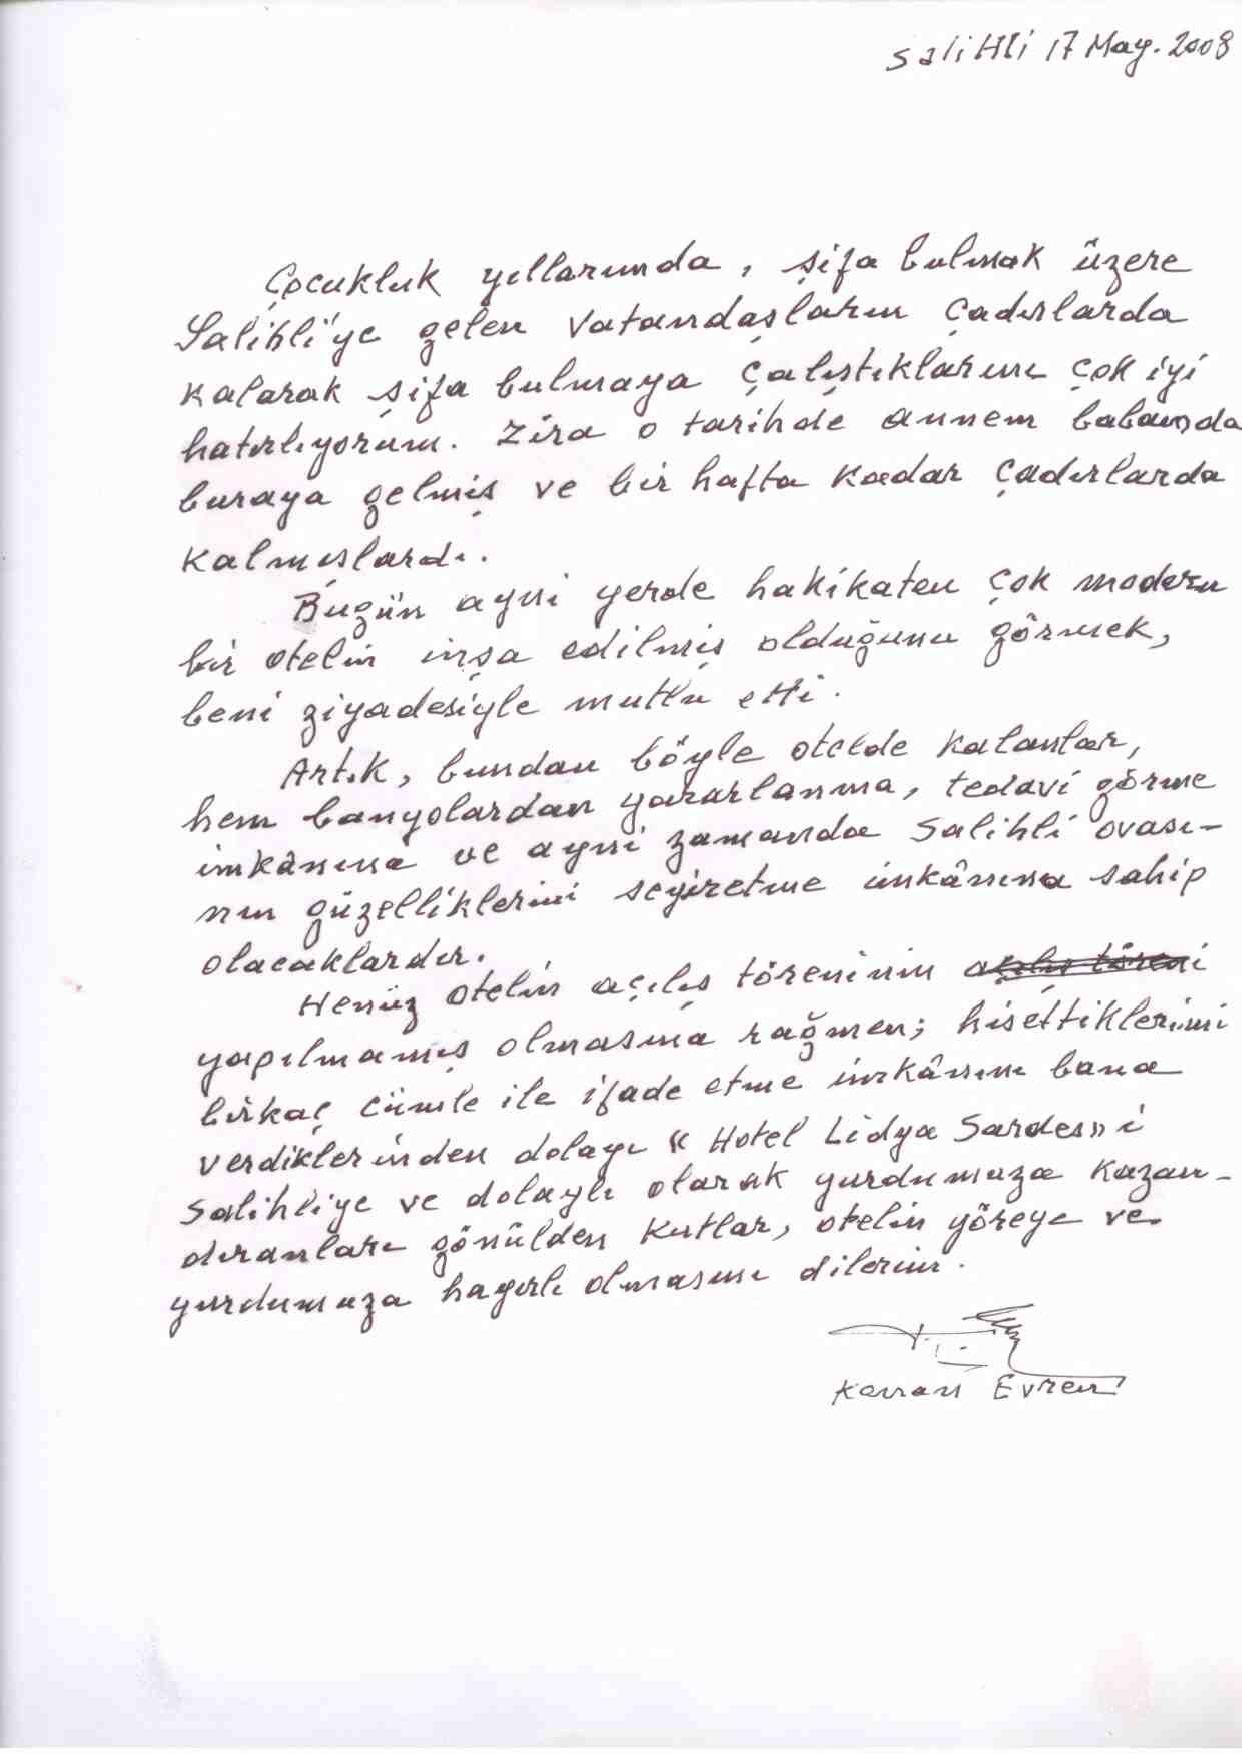 Salihli 17 May. 2008
Çocukluk yıllarımda, şifa bulmak üzere
Salihli'ye gelen vatandaşların çadırlarda
kalarak şifa bulmaya çalıştıklarını çok iyi
hatırlıyorum. Zira o tarihde annem babamda
buraya gelmiş ve bir hafta kadar çadırlarda
kalmışlardı.
Bugün ayni yerde hakikaten çok modern
bir otelin inşa edilmiş olduğunu görmek,
beni ziyadesiyle mutlu etti.
Artık, bundan böyle otelde kalanlar,
hem banyolardan yararlanma, tedavi görme
imkânına ve ayni zamanda Salihli ovası-
nın güzelliklerini seyretme imkânına sahip
olacaklardır.
Henüz otelin açılış töreninin açılış töreni
yapılmamış olmasına rağmen; hisettiklerimi
birkaç cümle ile ifade etme imkânını bana
verdiklerinden dolayı "Hotel Lidya Sardes" i
Salihli'ye ve dolaylı olarak yurdumuza kazan-
dıranları gönülden kutlar, otelin yöreye ve
yurdumuza hayırlı olmasını dilerim.
Kenan Evren